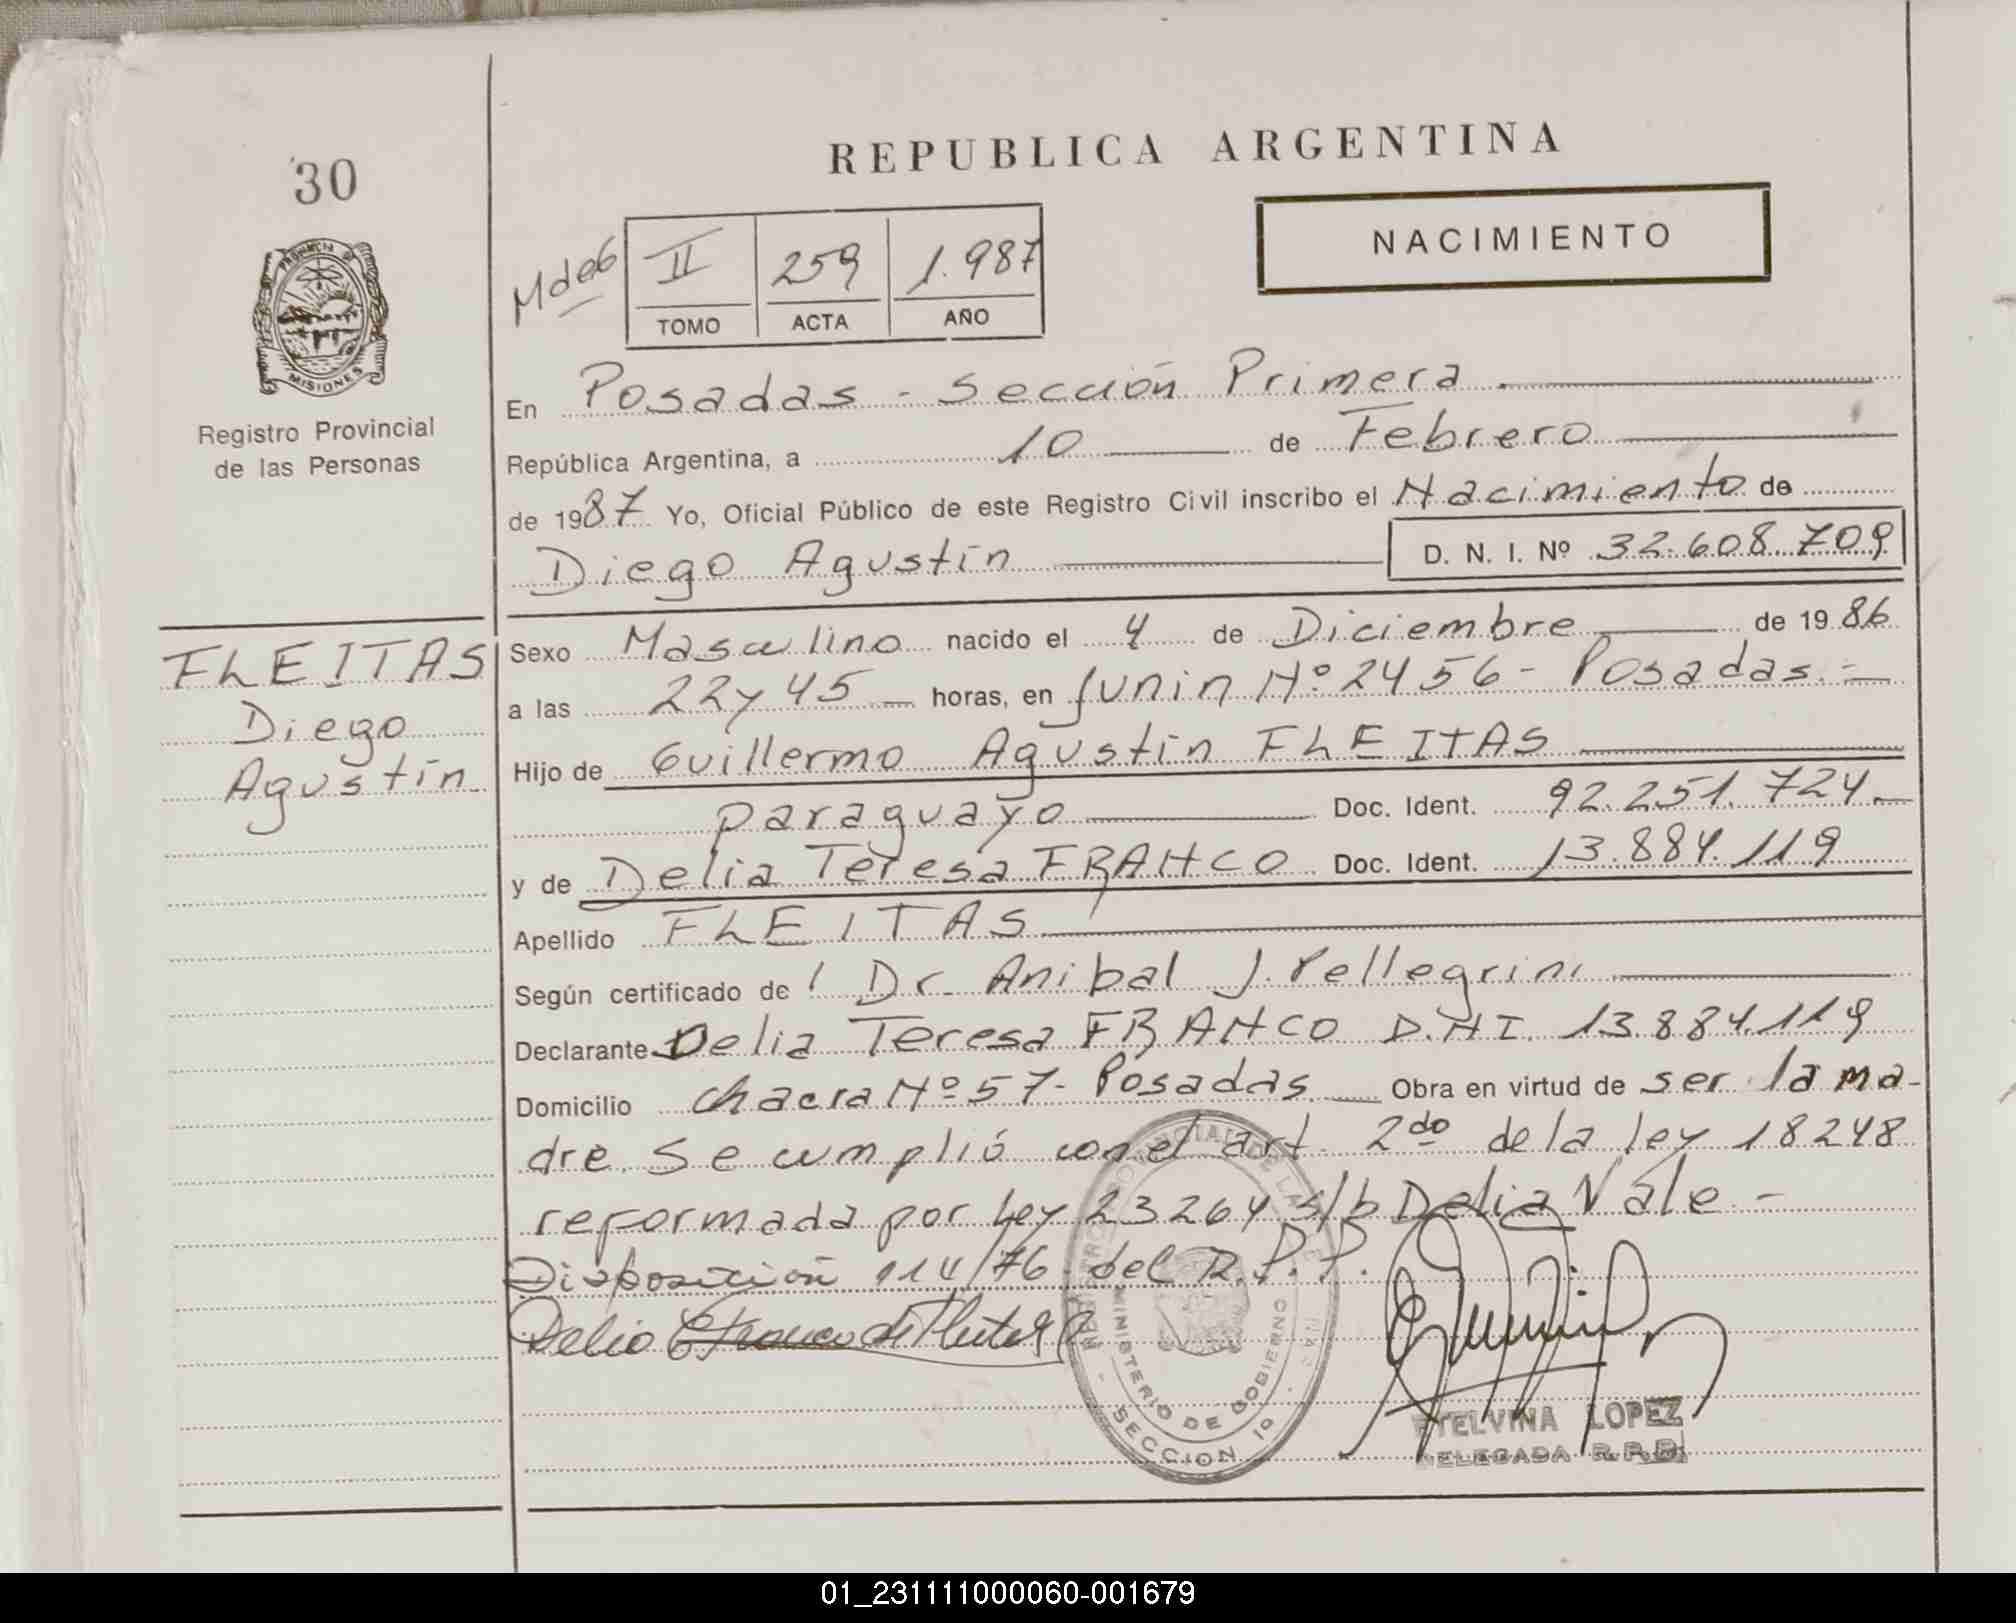 30
REPUBLICA ARGENTINA
NACIMIENTO
II 259 1.987
TOMO ACTA AÑO
PROVINCIA DE MISIONES
Registro Provincial
de las Personas
En Posadas - Sección Primera
República Argentina, a 10 de Febrero
de 1987 Yo, Oficial Público de este Registro Civil inscribo el Nacimiento de
Diego Agustín D. N. I. Nº 32.608.709
FLEITAS
Diego
Agustín
Sexo Masculino nacido el 4 de Diciembre de 1986
a las 22 y 45 horas, en Junin Nº 2456 - Posadas.-
Hijo de Guillermo Agustin FLEITAS
paraguayo Doc. Ident. 92.251.724
y de Delia Teresa FRANCO Doc. Ident. 13.884.119
Apellido FLEITAS
Según certificado de Dr. Anibal J. Pellegrini
Declarante Delia Teresa FRANCO D.N.I. 13.884.119
Domicilio chacra Nº 57- Posadas Obra en virtud de ser la ma-
dre. Se cumplió con el art. 2do de la ley 18248
reformada por Ley 23264 s/b Delia Vale -
Disposición 114/76 del R.P.P.
Delia Franco de Fleitas
REGISTRO PROVINCIAL DE LAS PERSONAS
MINISTERIO DE GOBIERNO
SECCION 1º
ETELVINA LOPEZ
DELEGADA R.P.P.
01_231111000060-001679